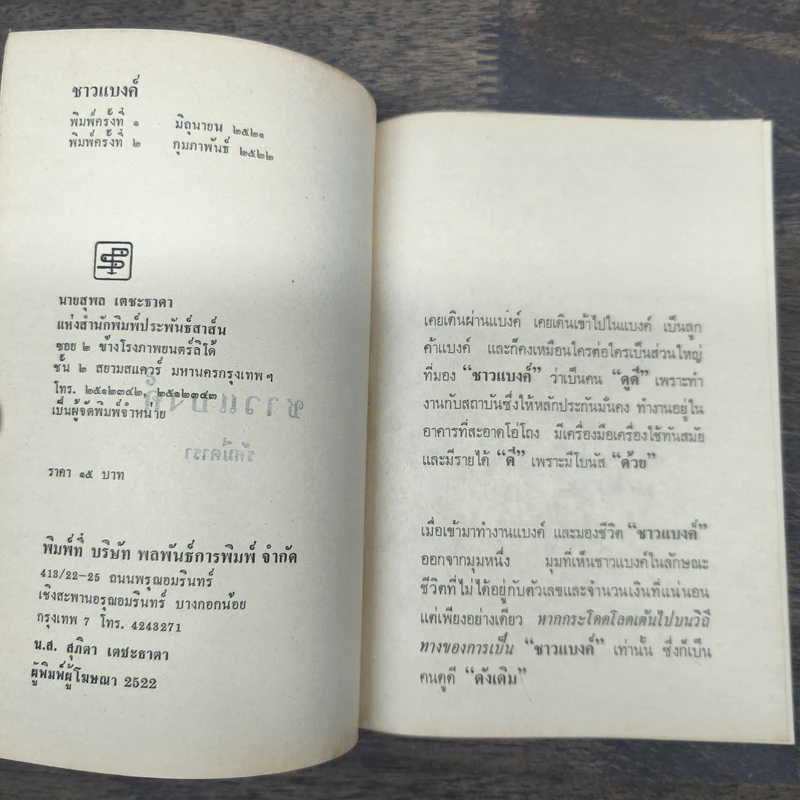 ชาวแบงค์
พิมพ์ครั้งที่ ๑ มิถุนายน ๒๕๒๑
พิมพ์ครั้งที่ ๒ กุมภาพันธ์ ๒๕๒๒
นายสุพล เตชะธาดา
แห่งสำนักพิมพ์ประพันธ์สาส์น
ซอย ๒ ข้างโรงภาพยนตร์ลิโด้
ชั้น ๒ สยามสแควร์ มหานครกรุงเทพฯ
โทร. ๒๕๑๒๓๔๒, ๒๕๑๒๓๔๓
เป็นผู้จัดพิมพ์จำหน่าย
ราคา ๑๕ บาท
พิมพ์ที่ บริษัท พลพันธ์การพิมพ์ จำกัด
413/22-25 ถนนพรุณอมรินทร์
เชิงสะพานอรุณอมรินทร์ บางกอกน้อย
กรุงเทพ 7 โทร. 4243271
น.ส. สุภิตา เตชะธาดา
ผู้พิมพ์ผู้โฆษณา 2522
เคยเดินผ่านแบงค์ เคยเดินเข้าไปในแบงค์ เป็นลูก
ค้าแบงค์ และก็คงเหมือนใครต่อใครเป็นส่วนใหญ่
ที่มอง “ชาวแบงค์” ว่าเป็นคน “ดูดี” เพราะทำ
งานกับสถาบันซึ่งให้หลักประกันมั่นคง ทำงานอยู่ใน
อาคารที่สะอาดโอ่โถง มีเครื่องมือเครื่องใช้ทันสมัย
และมีรายได้ “ดี” เพราะมีโบนัส “ด้วย”
เมื่อเข้ามาทำงานแบงค์ และมองชีวิต “ชาวแบงค์”
ออกจากมุมหนึ่ง มุมที่เห็นชาวแบงค์ในลักษณะ
ชีวิตที่ไม่ได้อยู่กับตัวเลขและจำนวนเงินที่แน่นอน
แต่เพียงอย่างเดียว หากกระโดดโลดเต้นไปบนวิถี
ทางของการเป็น “ชาวแบงค์” เท่านั้น ซึ่งก็เป็น
คนดูดี “ดังเดิม”